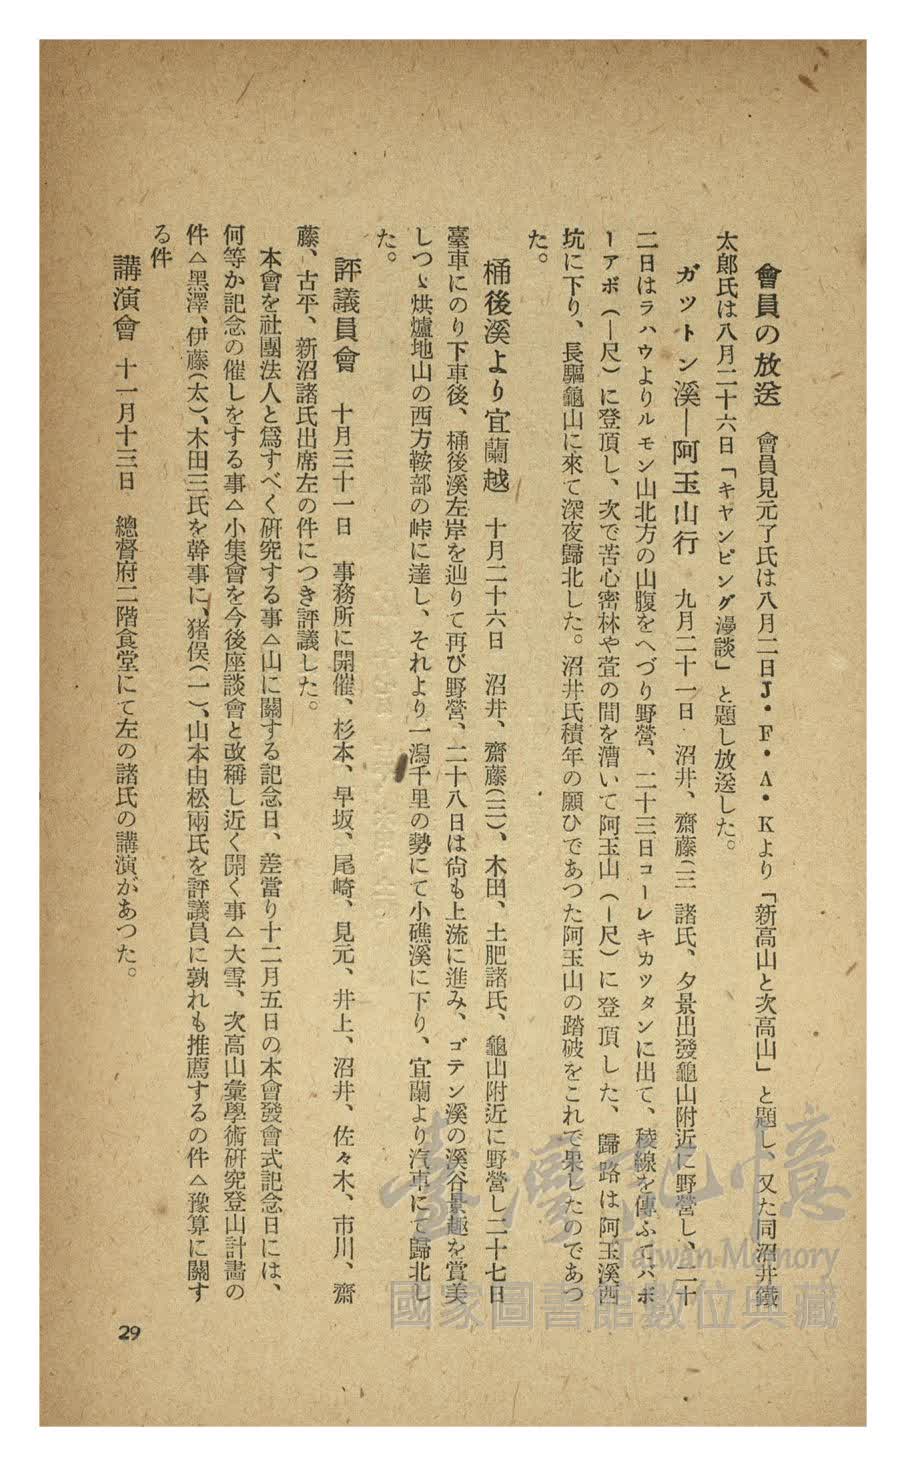 會員の放送　會員見元了氏は八月二日J・F・A・Kより「新高山と次高山」と題し、又た同沼井鐵
太郎氏は八月二十六日「キャンピング漫談」と題し放送した。
ガットン溪—阿玉山行　九月二十一日　沼井、齋藤(三)諸氏、夕景出發龜山附近に野營し、二十
二日はラハウよりルモン山北方の山腹をへづり野營、二十三日コーレキカッタンに出て、稜線を傳ふてバボ
ーアボ(—尺)に登頂し、次で苦心密林や萱の間を漕いて阿玉山(—尺)に登頂した、歸路は阿玉溪西
坑に下り、長驅龜山に來て深夜歸北した。沼井氏積年の願ひであつた阿玉山の踏破をこれで果したのであつ
た。
桶後溪より宜蘭越　十月二十六日　沼井、齋藤(三)、木田、土肥諸氏、龜山附近に野營し二十七日
臺車にのり下車後、桶後溪左岸を辿りて再び野營、二十八日は尙も上流に進み、ゴテン溪の溪谷景趣を賞美
しつゝ烘爐地山の西方鞍部の峠に達し、それより一瀉千里の勢にて小礁溪に下り、宜蘭より汽車にて歸北し
た。
評議員會　十月三十一日　事務所に開催、杉本、早坂、尾崎、見元、井上、沼井、佐々木、市川、齋
藤、古平、新沼諸氏出席左の件につき評議した。
本會を社團法人と爲すべく硏究する事△山に關する記念日、差當り十二月五日の本會發會式記念日には、
何等か記念の催しをする事△小集會を今後座談會と改稱し近く開く事△大雪、次高山彙學術硏究登山計畫の
件△黑澤、伊藤(太)、木田三氏を幹事に、猪俣(一)、山本由松兩氏を評議員に孰れも推薦するの件△豫算に關す
る件
講演會　十一月十三日　總督府二階食堂にて左の諸氏の講演があつた。
29
臺灣記憶
Taiwan Memory
國家圖書館數位典藏